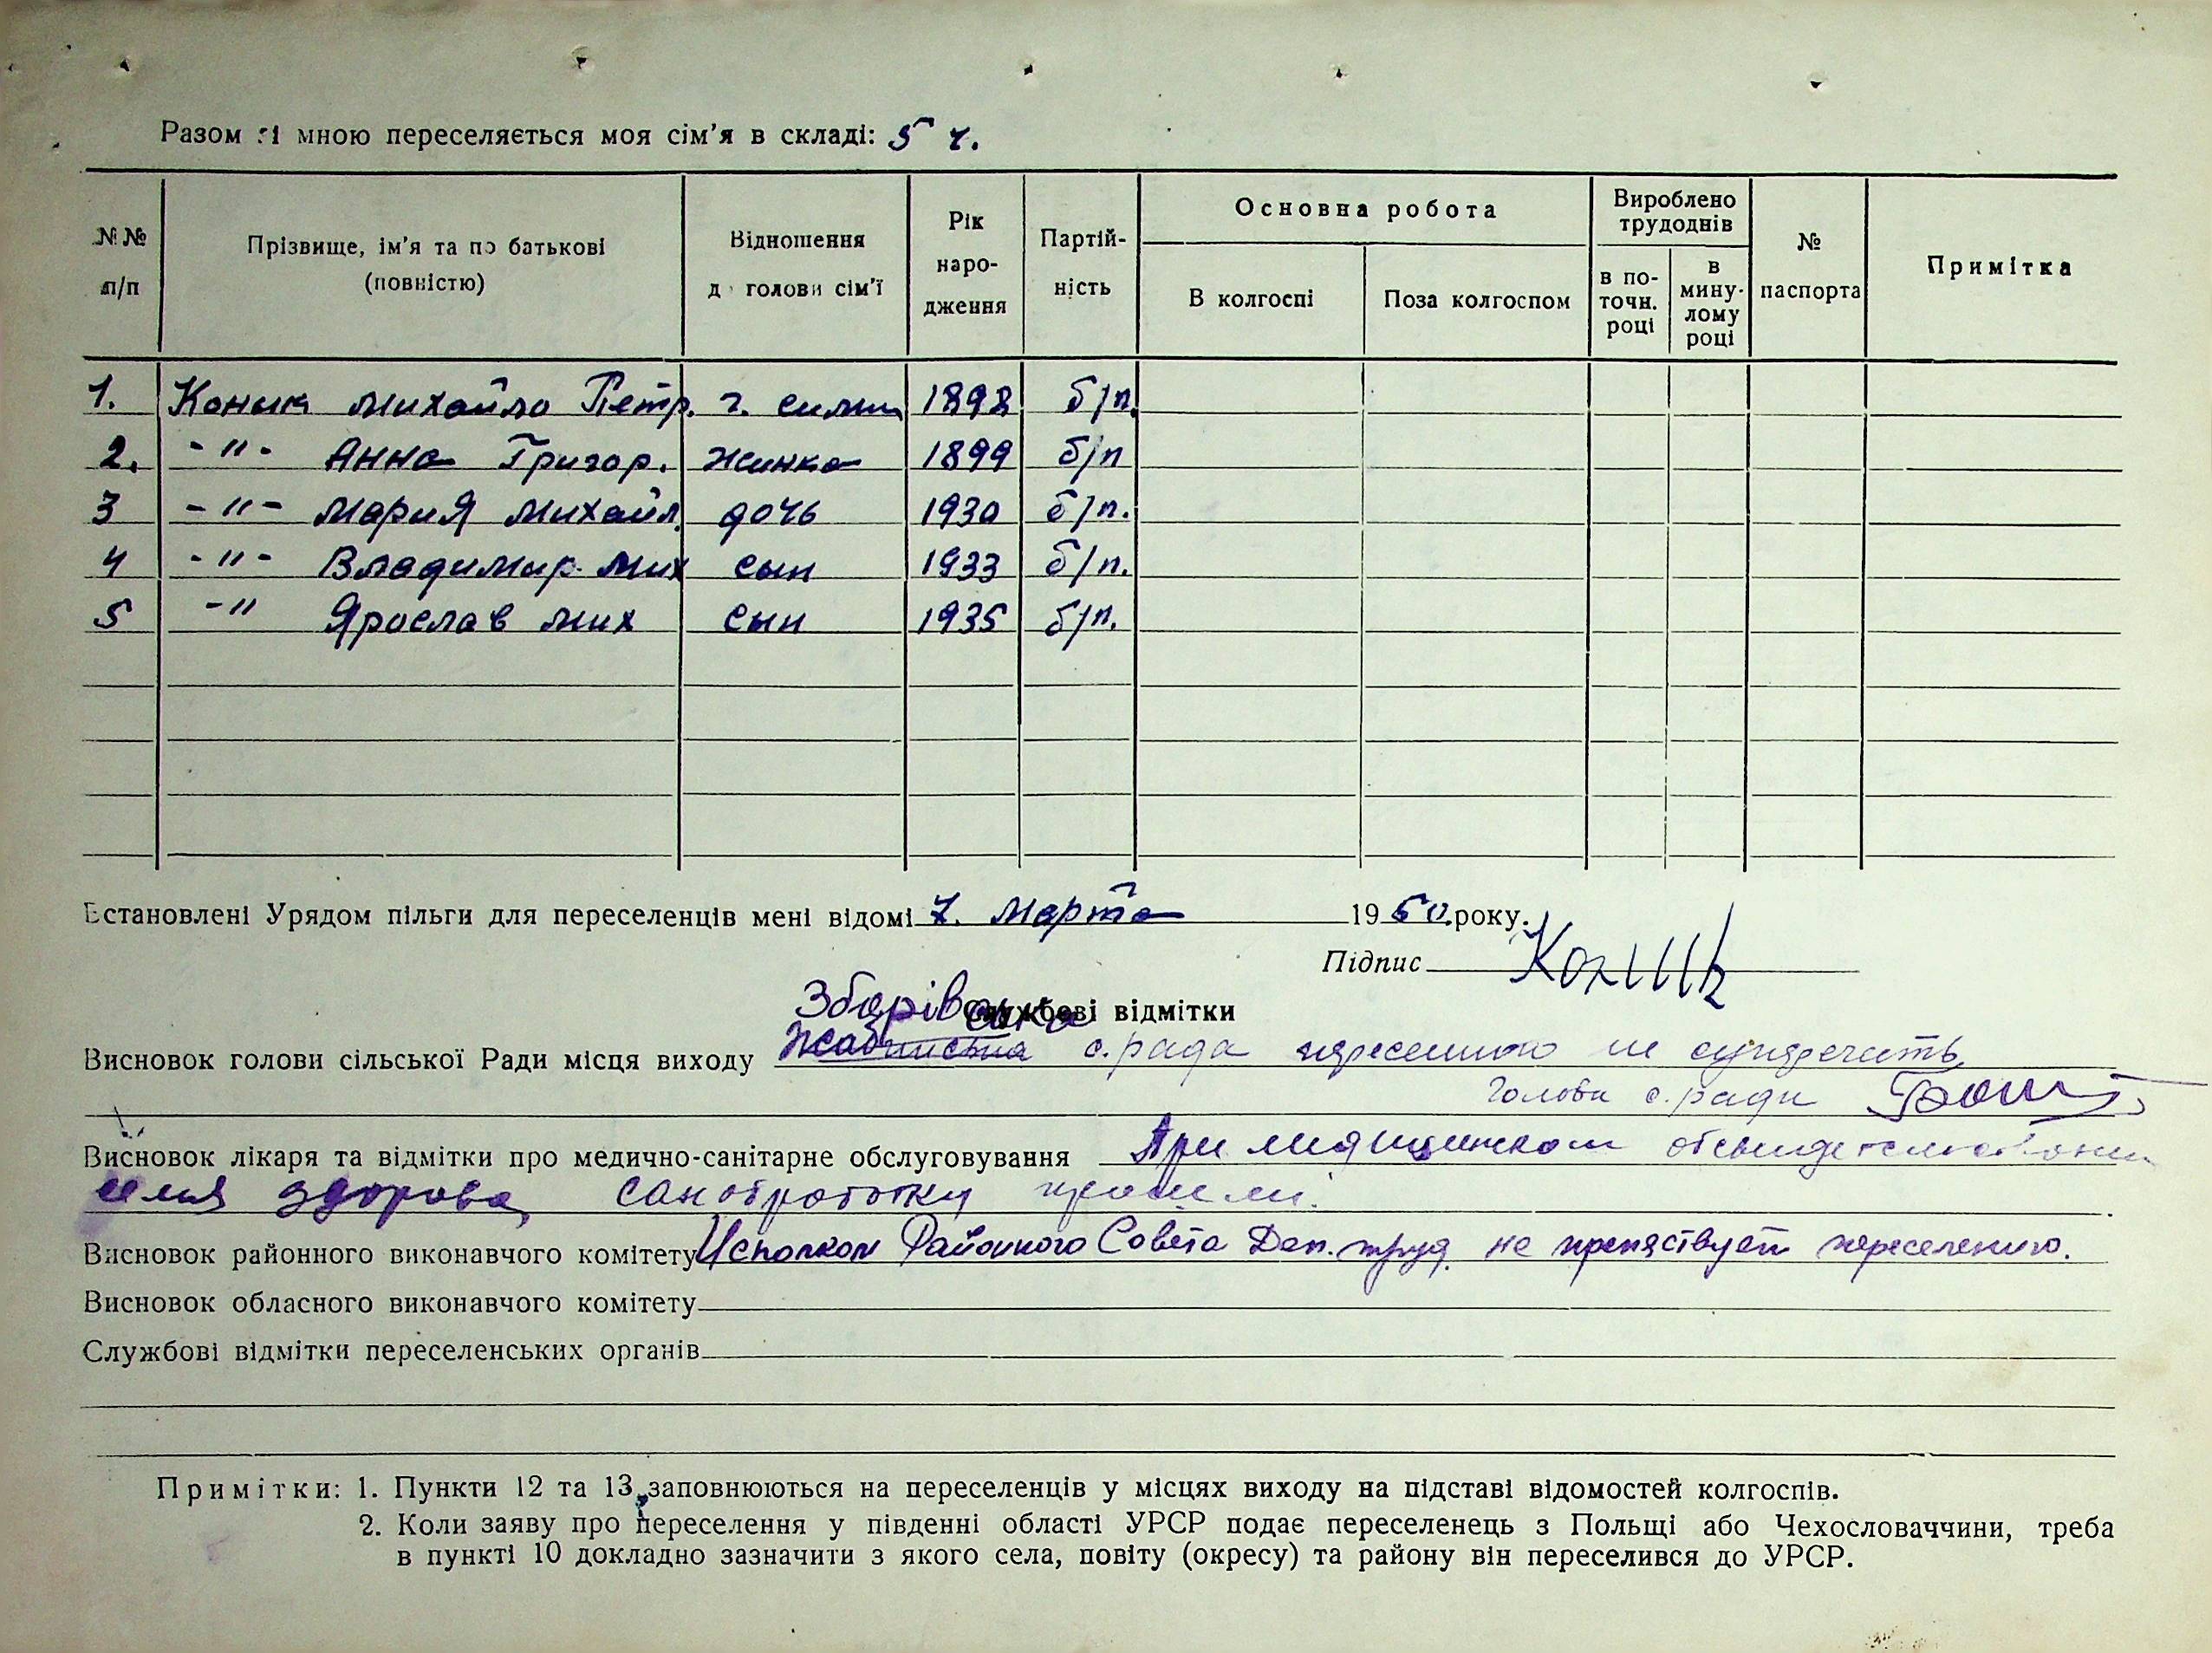 Разом зі мною переселяється моя сім'я в складі: 5 ч.
№№ п/п Прізвище, ім'я та по батькові (повністю) Відношення до голови сім'ї Рік народження Партійність Основна робота Вироблено трудоднів № паспорта Примітка
В колгоспі Поза колгоспом в поточн. році в минулому році
1. Коник Михайло Петр. г. симии 1898 б/п.
2. -"- Анна Григор. жинка 1899 б/п
3 -"- Мария Михайл. дочь 1930 б/п.
4 -"- Владимир Мих сын 1933 б/п.
5 -" Ярослав Мих сын 1935 б/п.
Встановлені Урядом пільги для переселенців мені відомі 7. Марта 1950 року.
Підпис Коник
Зборівська
Службові відмітки
Висновок голови сільської Ради місця виходу с. рада переселению не
Голова с. ради
Висновок лікаря та відмітки про медично-санітарне обслуговування При медицинском освидетельствовании
семья здорова, санобработку прошли.
Висновок районного виконавчого комітету Исполком Районного Совета Деп. труд. не препяствует переселению.
Висновок обласного виконавчого комітету
Службові відмітки переселенських органів
Примітки: 1. Пункти 12 та 13 заповнюються на переселенців у місцях виходу на підставі відомостей колгоспів.
2. Коли заяву про переселення у південні області УРСР подає переселенець з Польщі або Чехословаччини, треба
в пункті 10 докладно зазначити з якого села, повіту (окресу) та району він переселився до УРСР.